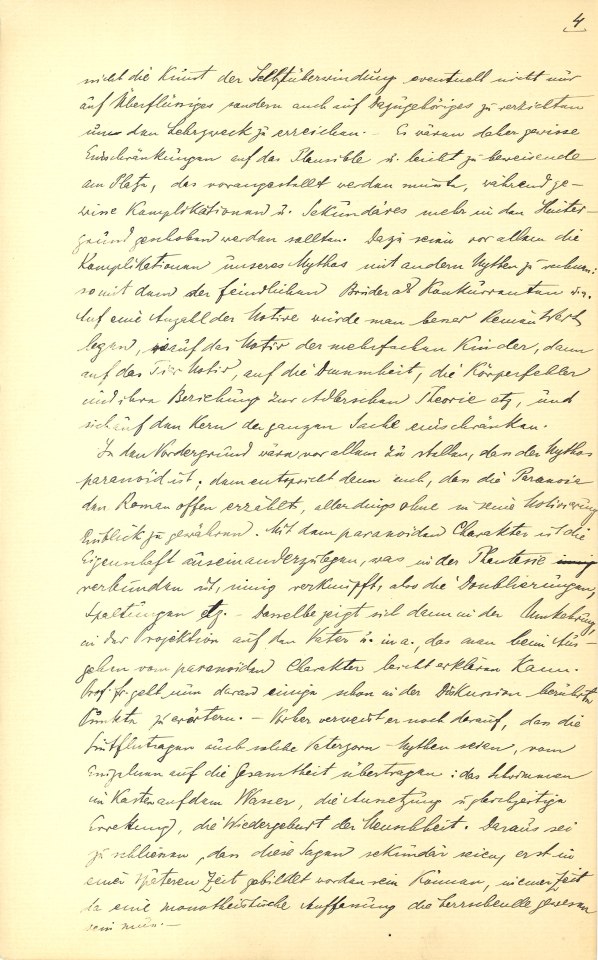 4
nicht die Kunst der Selbstüberwindung eventuell nicht nur
auf Überflüssiges sondern auch auf Dazugehöriges zu verzichten
um den Lehrzweck zu erreichen. – Es wären daher gewisse
Einschränkungen auf das Plausible u. leicht zu beweisende
am Platz, das vorangestellt werden müsste, während ge-
wisse Komplikationen u. Sekundäres mehr in den Hinter-
grund geschoben werden sollten. Dazu seien vor allem die
Komplikationen unseres Mythos mit andern Mythen zu rechnen:
so mit dem der feindlichen Brüder als Konkurrenten
Auf eine Anzahl der Motive würde man besser keinen Wert
legen, auf das Motiv der mehrfachen Kinder, dann
auf das Tier Motiv, auf die Dummheit, die Körperfehler
und ihre Beziehung zur Adlerschen Theorie etz, und
sich auf den Kern der ganzen Sache einschränken.
In den Vordergrund wäre vor allem zu stellen, dass der Mythos
paranoid ist; dem entspricht denn auch, dass die Paranoia
den Roman offen erzählt, allerdings ohne in seine Motivierung
Einblick zu gewähren. Mit dem paranoiden Charakter ist die
Eigenschaft auseinanderzulegen, was in der Phantasie innig
verbunden ist, innig verknüpft, also die Doublierungen,
Spaltungen etz. – Dasselbe zeigt sich denn in der Umkehrung,
in der Projektion auf den Vater u. in a., das man beim Aus-
gehen vom paranoiden Charakter leicht erklären kann.
Prof. Fr. geht nun daran einige schon in der Diskussion berührte
Punkte zu erörtern. – Vorher verweist er noch darauf, dass die
Sintflutsagen auch solche Vaterzorn-Mythen seien, vom
Einzelnen auf die Gesamtheit übertragen: das Schwimmen
im Kasten auf dem Wasser, die Aussetzung u. gleichzeitige
Errettung, die Wiedergeburt der Menschheit. Daraus sei
zu schliessen, dass diese Sagen sekundär seien, erst in
einer späteren Zeit gebildet worden sein können, in einer Zeit
da eine monotheistische Auffassung die herrschende gewesen
sein muss. –